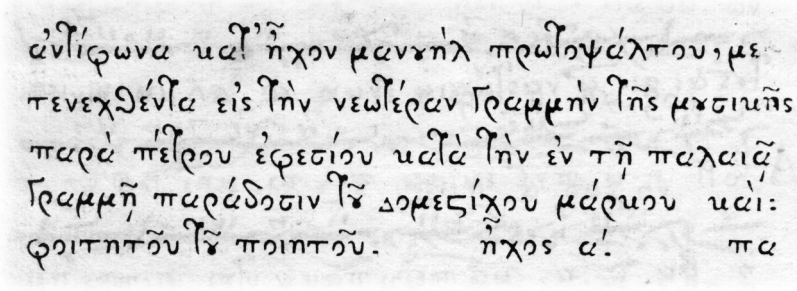 ἀντίφωνα κατ' ἦχον μανȣὴλ πρωτοψάλτου, με
τενεχθέντα εἰς τὴν νεωτέραν Γραμμὴν τῆς μȣσικῆς
παρὰ πέτρου ἐφεσίου κατὰ τὴν ἐν τῆ παλαιᾶ
Γραμμῆ παράδοσιν τȣ͂ Δομεϛίχου μάρκου καὶ:
φοιτητοῦ τȣ͂ ποιητοῦ. ἦχος α'. πα